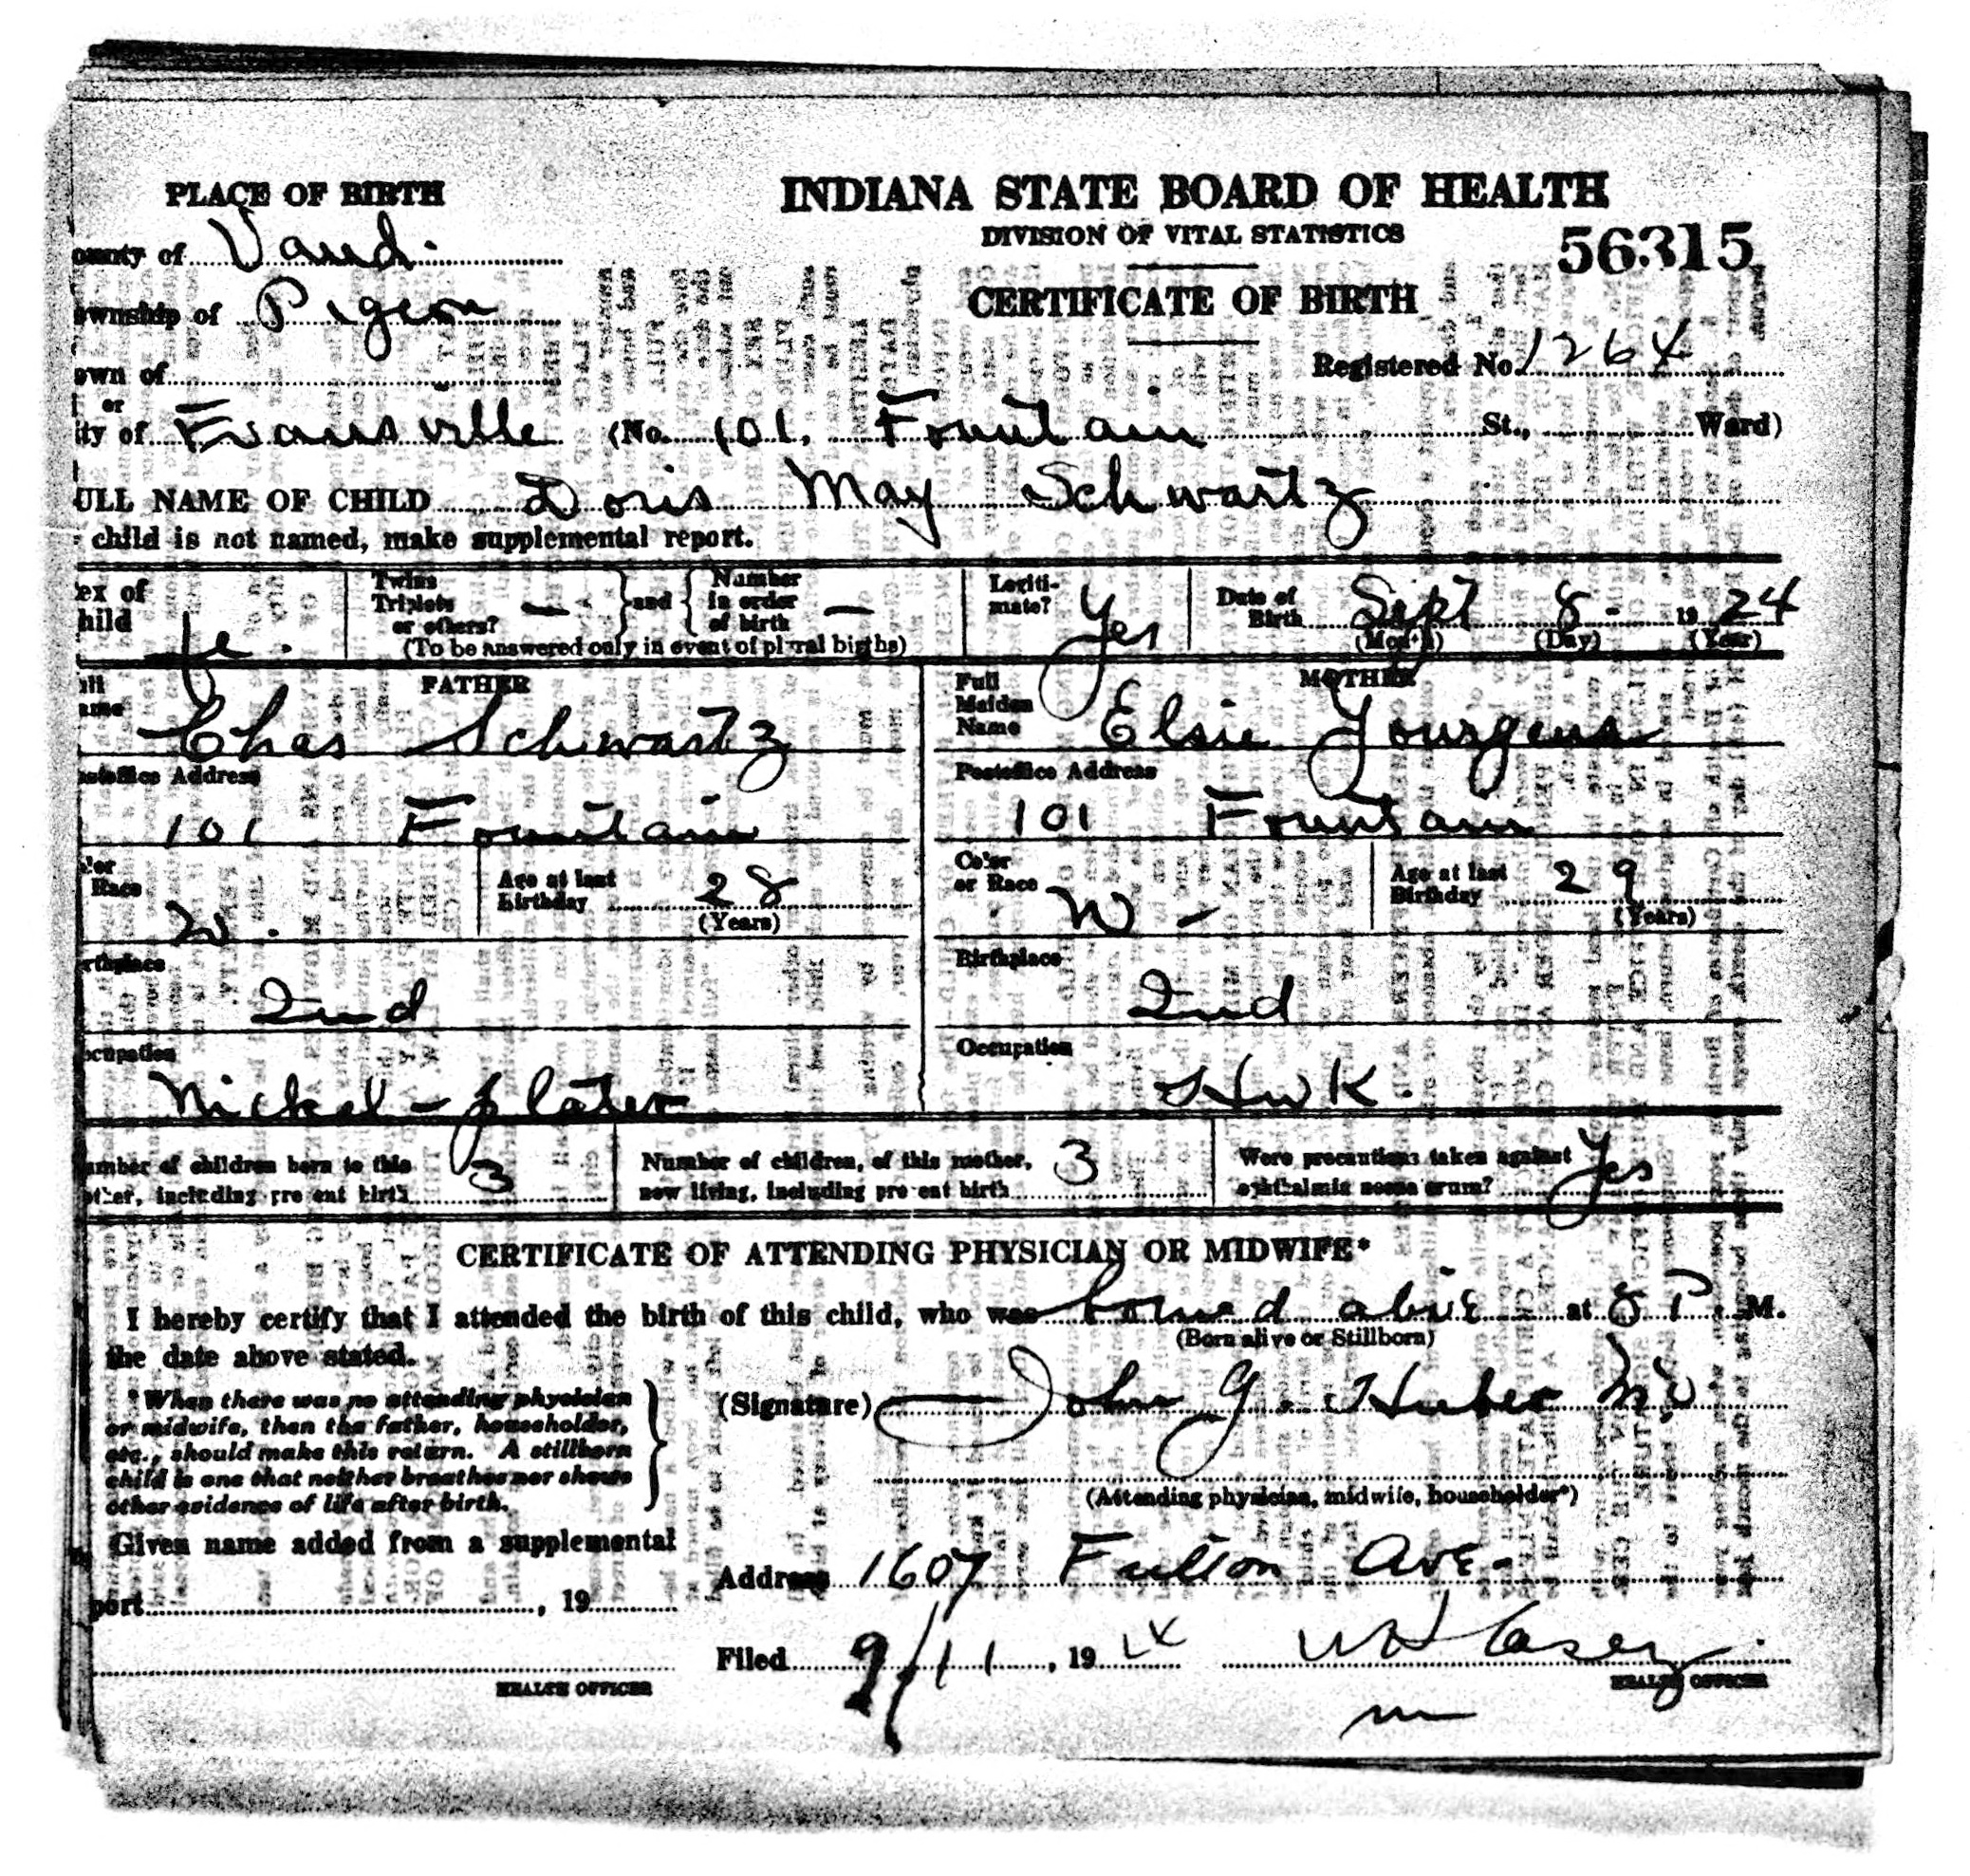 PLACE OF BIRTH
INDIANA STATE BOARD OF HEALTH
DIVISION OF VITAL STATISTICS
56315
ounty of Vand.
CERTIFICATE OF BIRTH
ownship of Pigeon
Registered No. 1264
own of
or
ity of Evansville (No. 101, Fountain St., Ward)
ULL NAME OF CHILD Doris May Schwartz
child is not named, make supplemental report.
ex of hild fe.
Twins Triplets or others? — and Number in order of birth —
(To be answered only in event of plural births)
Legiti- mate? Yes
Date of Birth Sept 8 - 19 24
(Month) (Day) (Year)
FATHER
ull ame Chas Schwartz
ostoffice Address
101 Fountain
olor Race W.
Age at last Birthday 28
(Years)
rthplace
Ind
ccupation
Nickel-plater
MOTHER
Full Maiden Name Elsie Yourgens
Postoffice Address
101 Fountain
Color or Race W -
Age at last Birthday 29
(Years)
Birthplace
Ind
Occupation
HwK.
umber of children born to this
other, including present birth 3
Number of children, of this mother,
now living, including present birth 3
Were precautions taken against
ophthalmia neonatorum? Yes
CERTIFICATE OF ATTENDING PHYSICIAN OR MIDWIFE*
I hereby certify that I attended the birth of this child, who was borned alive at 8 P. M.
(Born alive or Stillborn)
the date above stated.
*When there was no attending physician
or midwife, then the father, householder,
etc., should make this return. A stillborn
child is one that neither breathes nor shows
other evidence of life after birth.
(Signature) John G. Huber M.D
(Attending physician, midwife, householder*)
Given name added from a supplemental
port , 19
Address 1607 Fulton Ave-
Filed 9/11, 19 24 W H Casey
HEALTH OFFICER
HEALTH OFFICER
m